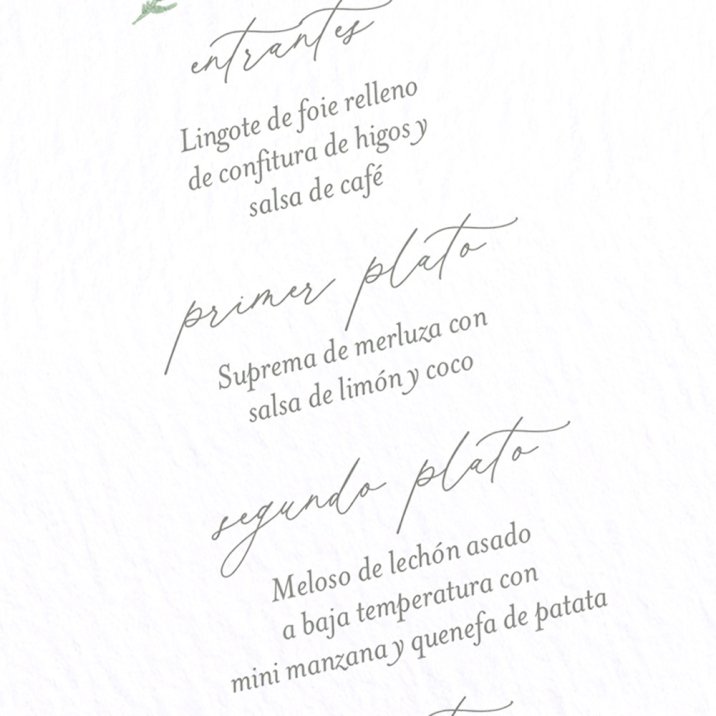 entrantes
Lingote de foie relleno
de confitura de higos y
salsa de café
primer plato
Suprema de merluza con
salsa de limón y coco
segundo plato
Meloso de lechón asado
a baja temperatura con
mini manzana y quenefa de patata